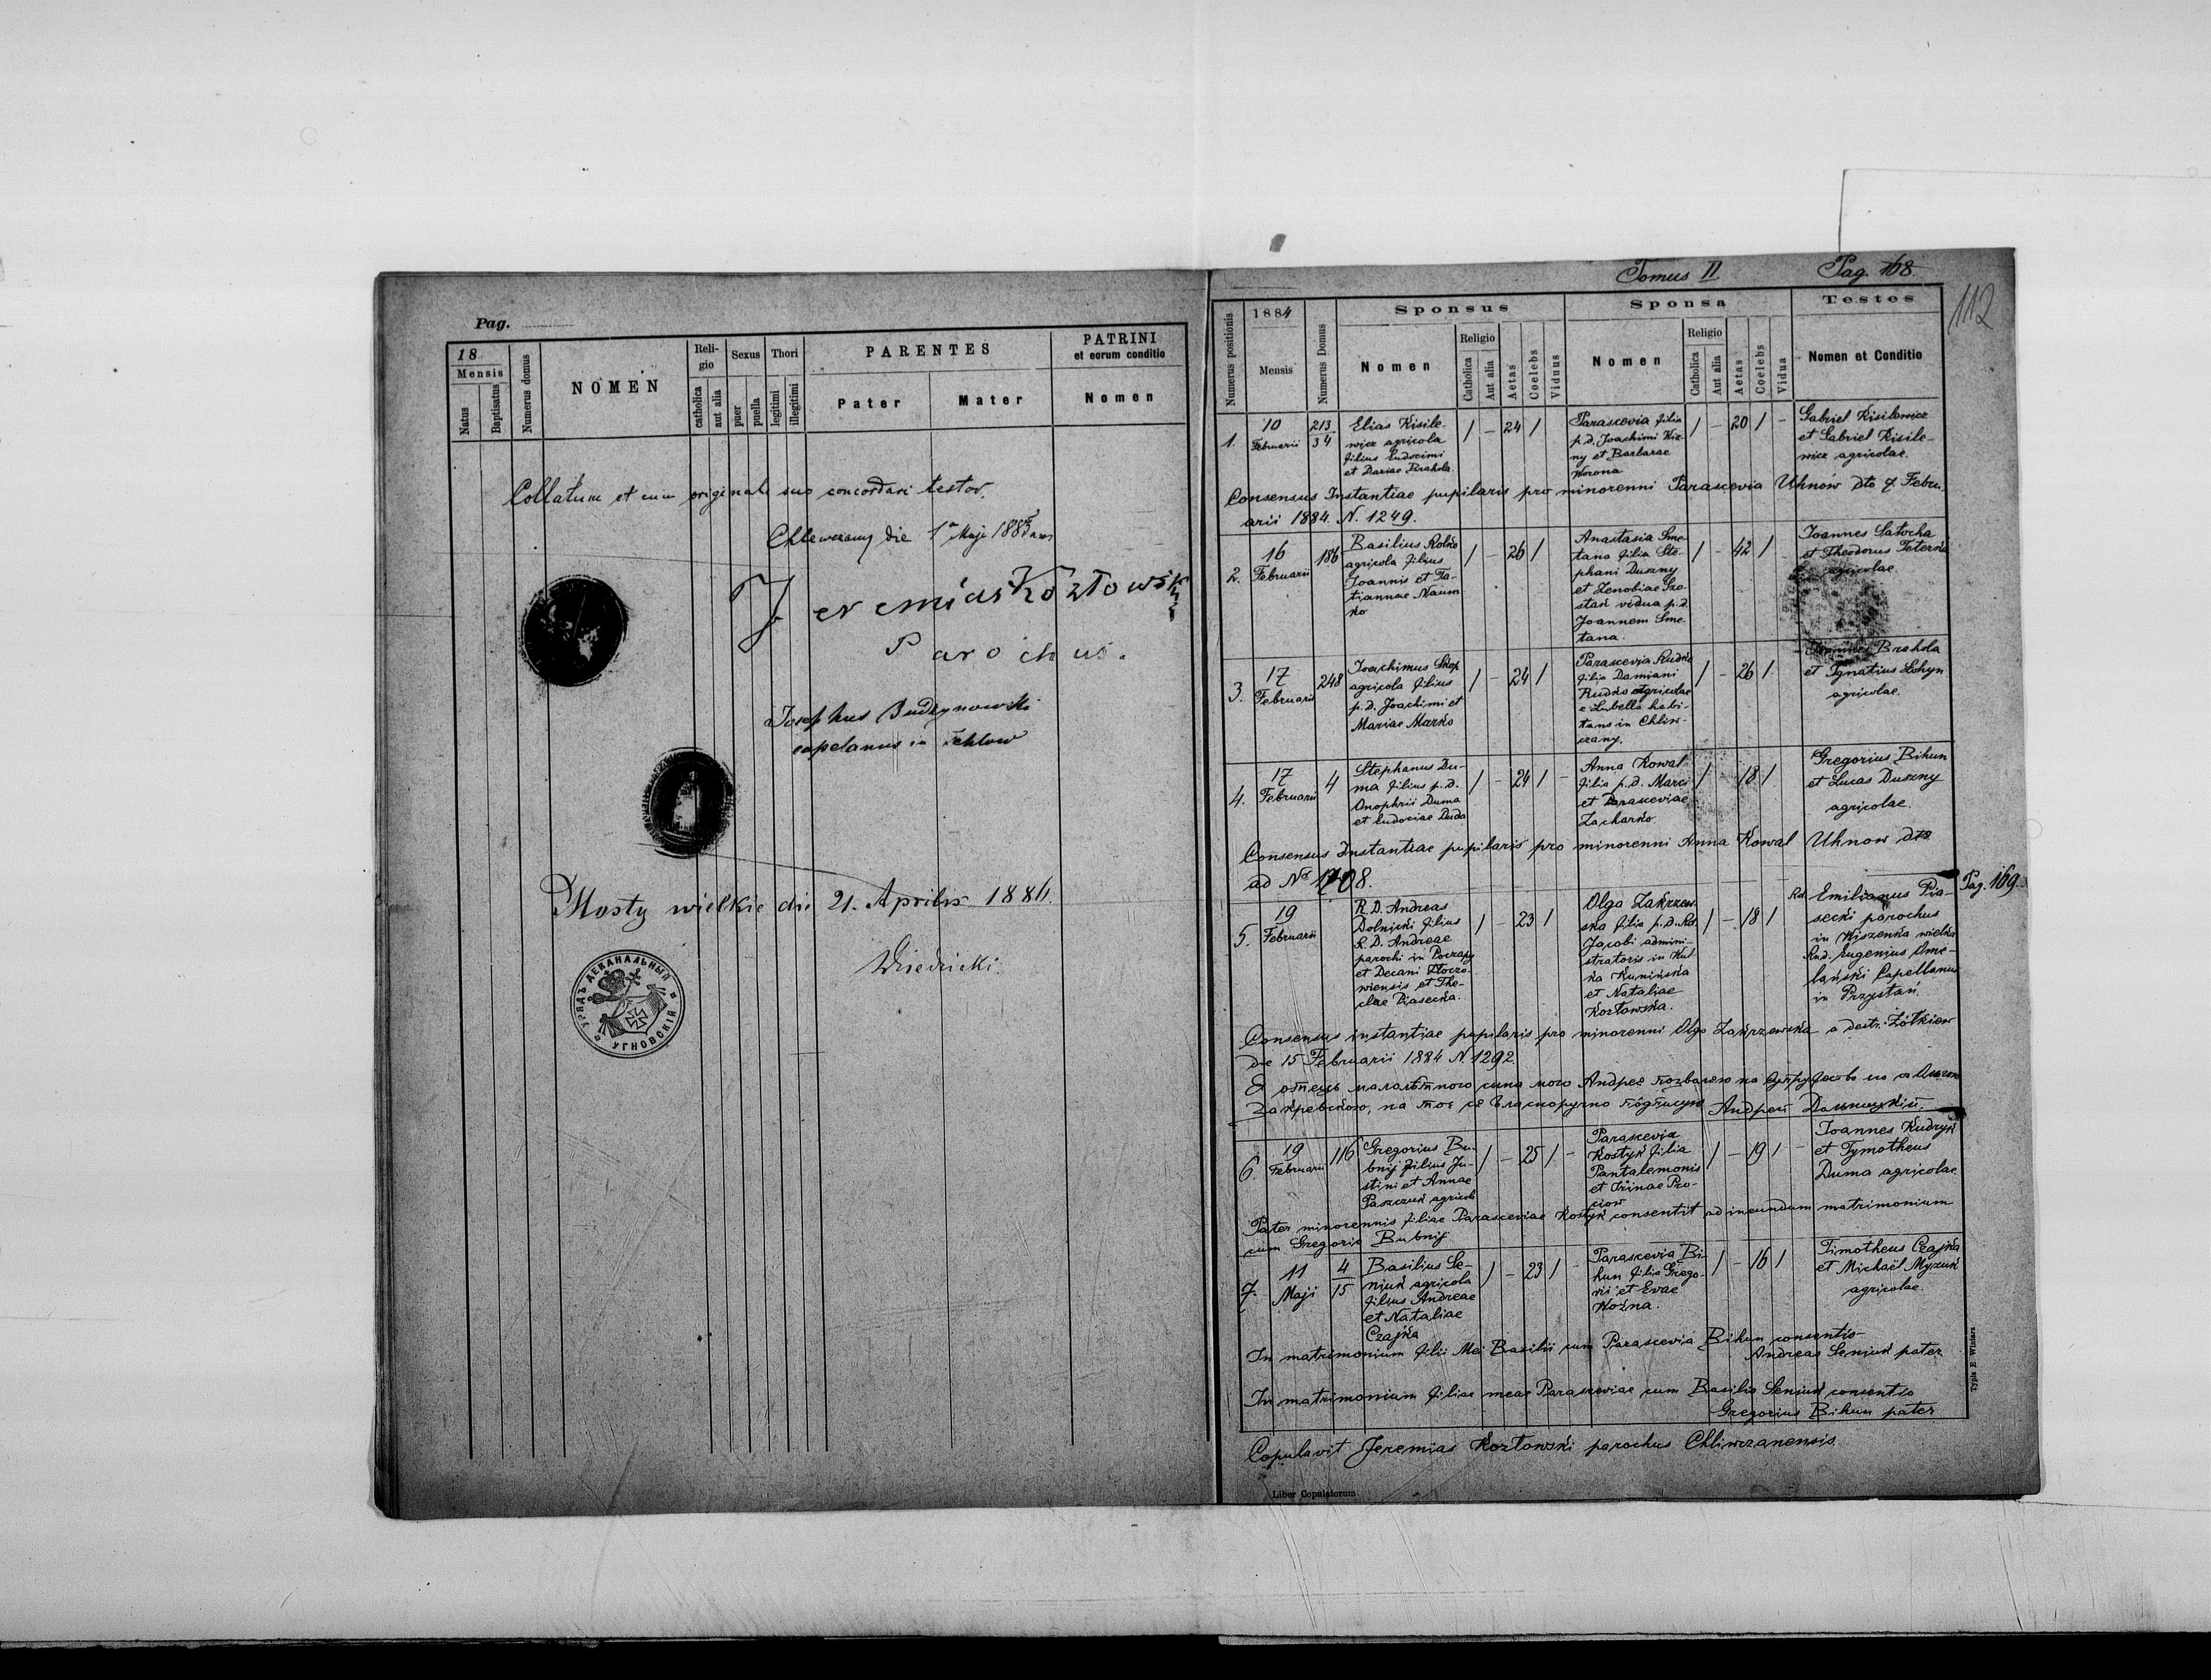 Pag.
18
Mensis
Natus
Baptisatus
Numerus domus
NOMEN
Reli-
gio
catholica
aut alia
Sexus
puer
puella
Thori
legitimi
illegitimi
PARENTES
Pater
Mater
PATRINI
et eorum conditio
Nomen
Collatum et cum originali suo concordari testor.
Chlewczany die 1a Maji 1885
Jeremias Kozłowski
Parochus.
Josephus Budzynowski
capelanus in
Mosty wielkie die 21. Aprilis 1886.
УРЯДЪ ДЕКАНАЛЬНЫЙ
УГНОВСКІЙ
Tomus II.
Pag. 168.
112
Numerus positionis
1884
Mensis
Numerus Domus
Sponsus
Nomen
Religio
Catholica
Aut alia
Aetas
Coelebs
Viduus
Sponsa
Nomen
Religio
Catholica
Aut alia
Aetas
Coelebs
Vidua
Testes
Nomen et Conditio
1.
10
Februarii
213
34
Elias Kisile-
wicz agricola
filius Eudocimi
et Dariae Brahola.
/ - 24 /
Parascevia filia
p.d. Joachimi
ny et Barbarae
Worona
/ - 20 / -
Gabriel Kisilewicz
et Gabriel Kisile-
wicz agricolae.
Consensus Instantiae pupilaris pro minorenni Parascevia Uhnow dto 7 Febru-
arii 1884. N. 1249.
2.
16
Februarii
186
Basilius Rolko
agricola filius
Joannis et Ta-
tiannae Naum
ko
/ - 26 /
Anastasia Sme-
tana filia Ste-
phani Duszny
et Zenobiae
vidua p.d.
Joannem Sme-
tana.
/ - 42 /
Joannes Satocha
et Theodorus Teterko
agricolae.
3.
17
Februarii
248
Joachimus Skop
agricola filius
p.d. Joachimi et
Mariae Marko
/ - 24 /
Parascevia Rudko
filia Damiani
Rudko agricolae
e Lubella habi-
tans in Chliw-
czany.
/ - 26 /
Brahola
et Ignatius Lohyn
agricolae.
4.
17
Februarii
4
Stephanus Du-
ma filius p.d.
Onophrii Duma
et Eudociae Duda
/ - 24 / -
Anna Kowal
filia p.d. Marci
et Parasceviae
Zacharko
/ 18 /
Gregorius Bihun
et Lucas Duszny
agricolae.
Consensus Instantiae pupilaris pro minorenni Anna Kowal Uhnow dto
ad No 1708.
Pag. 169.
5.
19
Februarii
R.D. Andreas
Dolnicki filius
R.D. Andreae
parochi in Poczapy
et Decani Złoczo-
wiensis et The-
clae Piasecka.
/ - 23 /
Olga Zakrzew-
ska filia p.d. Rd.
Jacobi admini-
stratoris in Wul-
ka Kunińska
et Nataliae
Kozłowska.
/ - 18 /
Rd. Emilianus Pia-
secki parochus
in Wiszenka wielka
Rud. Eugenius Ome-
lański Capellanus
in Przystań.
Consensus instantiae pupilaris pro minorenni Olga Zakrzewska a destr. Żółkiew
die 15 Februarii 1884 N. 1292.
Я отецъ малолѣтного сина мого Андрея позваляю на супружество
Закревскою, на тое сѧ власноручно подписую Андрей Дольницкій.
6.
19
Februarii
116
Gregorius Bu-
bnij filius Ju-
stini et Annae
Paszczuk agricola
/ - 25 / -
Parascevia
Kostyk filia
Pantalemonis
et Irinae Pro-
ciow
/ - 19 / -
Joannes Kudryk
et Tymotheus
Duma agricolae.
Pater minorennis filiae Parasceviae Kostyk consentit ad ineundum matrimonium
cum Gregorio Bubnij
7.
11
Maji
4
15
Basilius Se-
niuk agricola
filius Andreae
et Nataliae
Czajka
/ - 23 / -
Parascevia Bi-
hun filia Grego-
rii et Evae
Woźna.
/ - 16 /
Timotheus Czajka
et Michaël Myzuk
agricolae.
In matrimonium filii Mei Basilii cum Parascevia Bihun consentio-
Andreas Seniuk pater
In matrimonium filiae meae Parasceviae cum Basilio Seniuk consentio
Gregorius Bihun pater
Copulavit Jeremias Kozłowski parochus Chliwczanensis.
Liber Copulatorum
Typis E. Winiarz